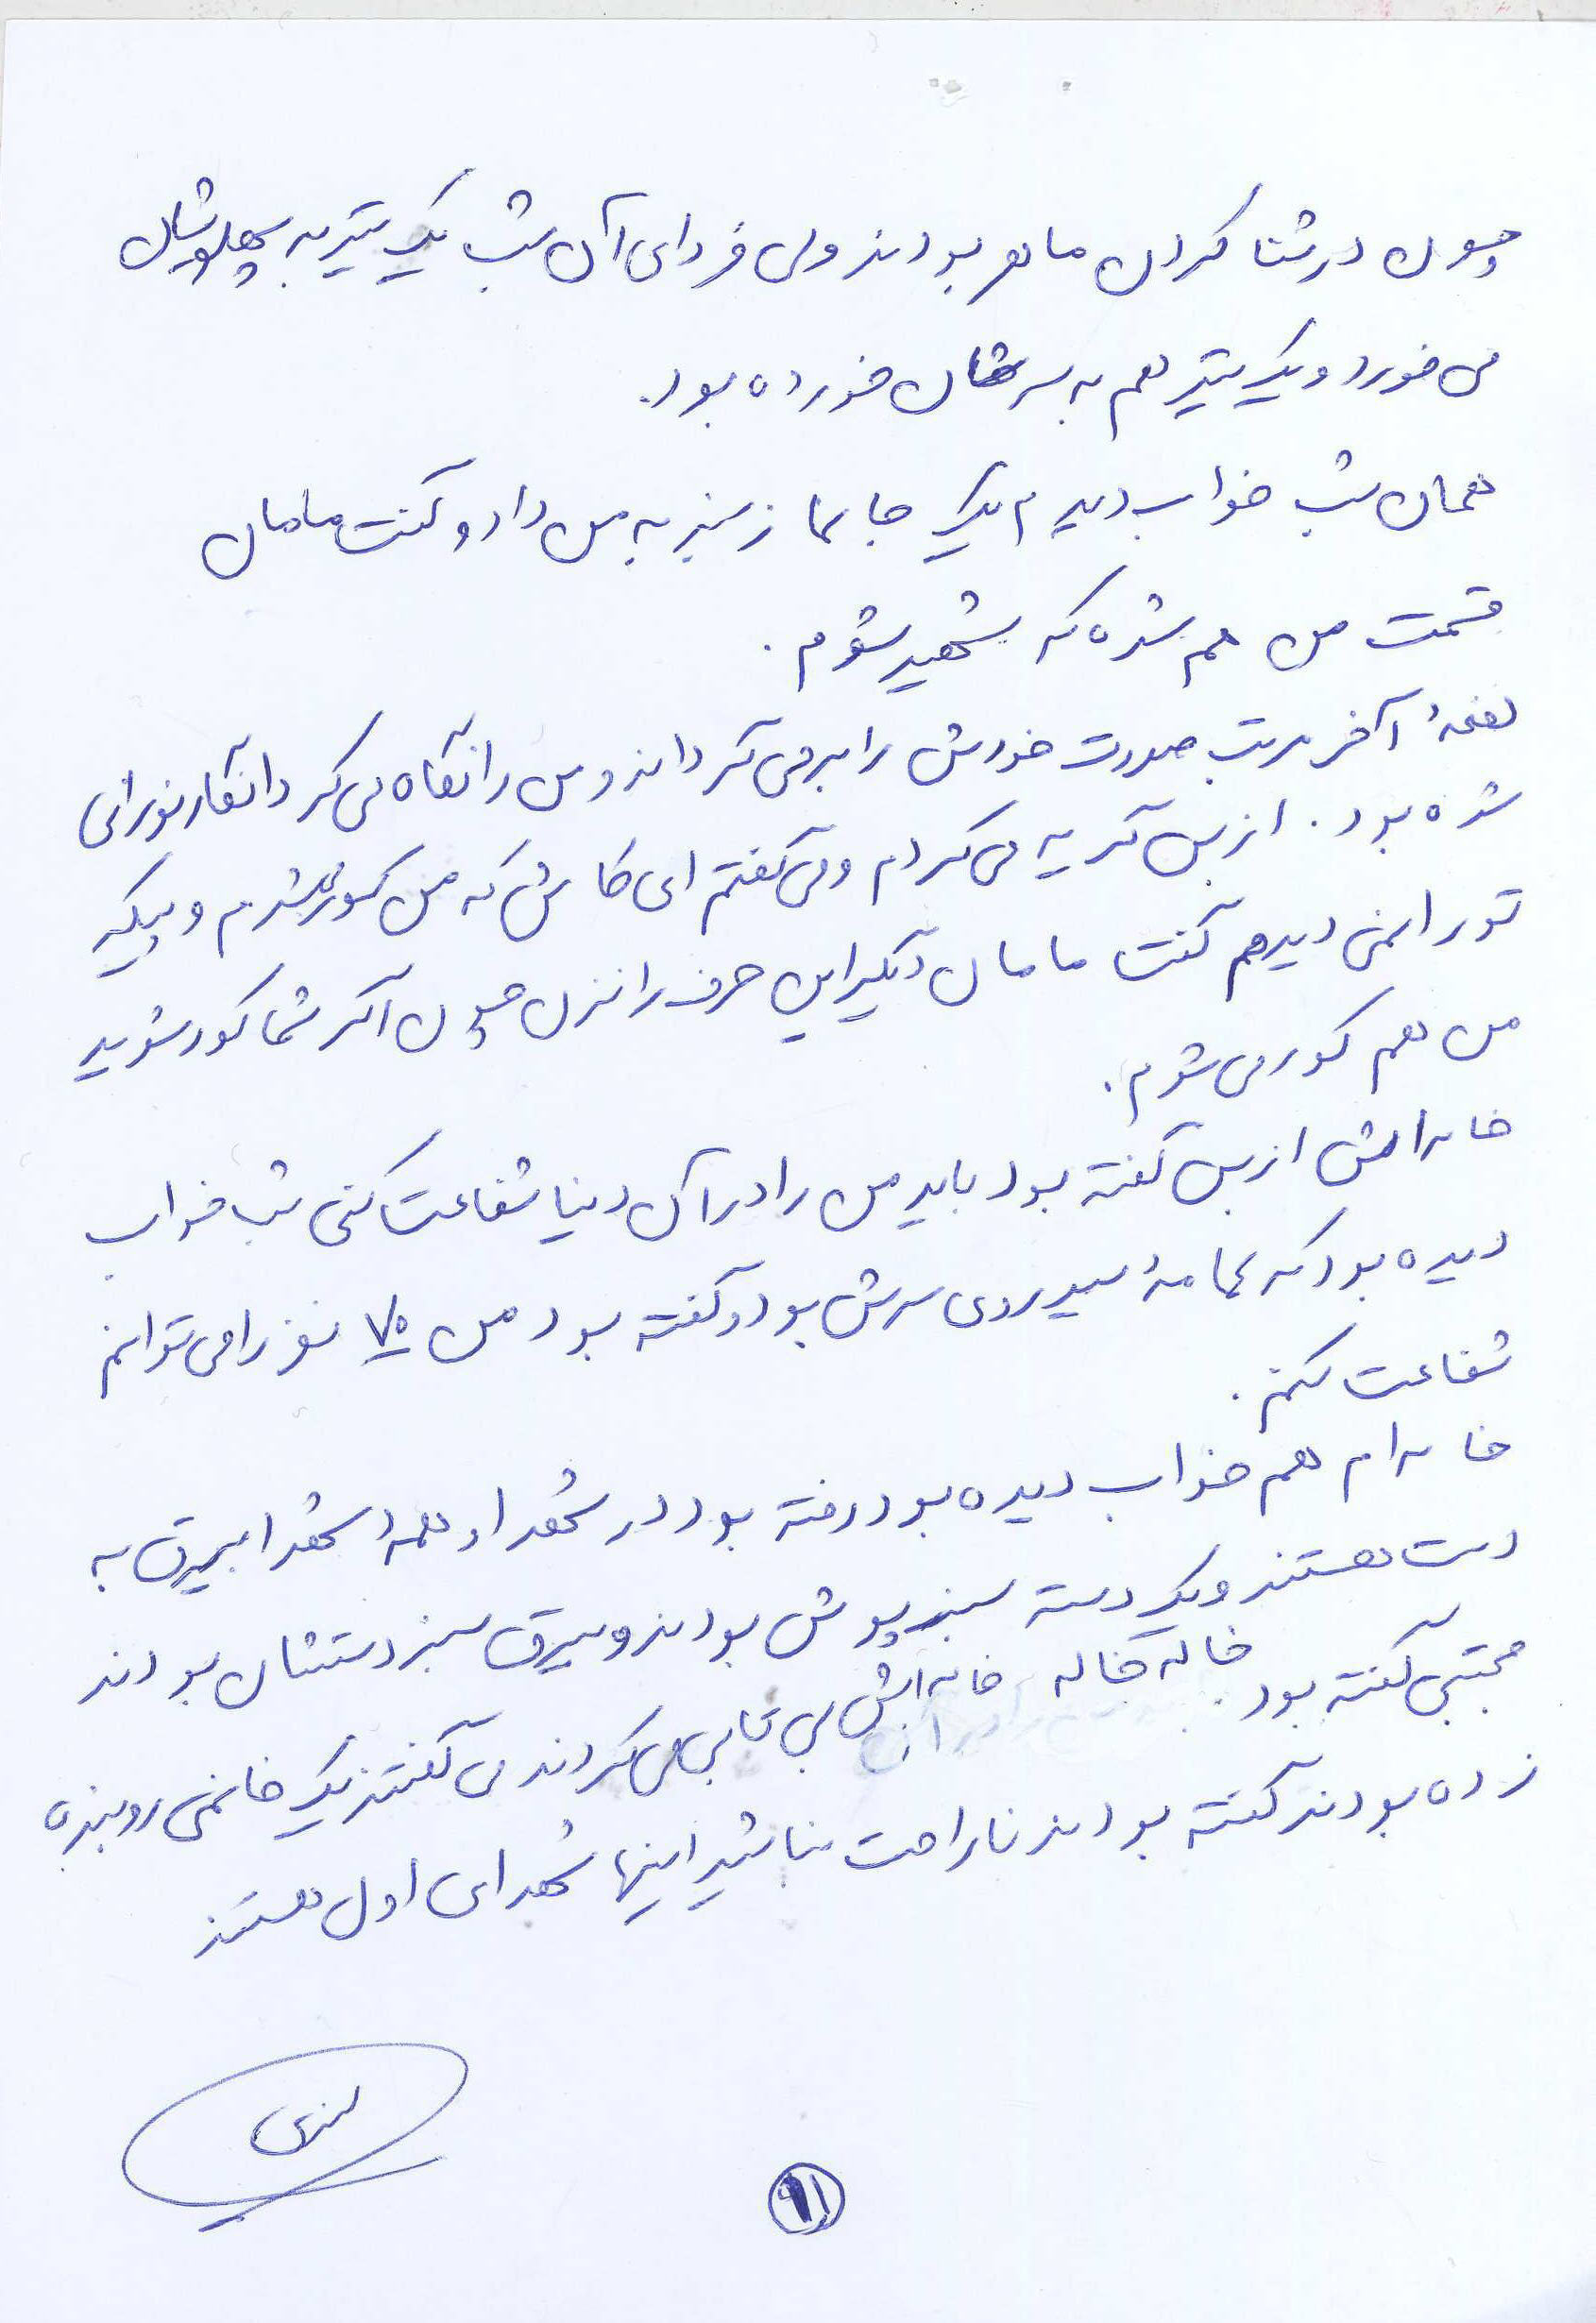 چون در شنا کردن ماهر بودند ولی فردای آن شب یک تیر به پهلویشان
می خورد و یک تیر هم به سرشان خورده بود.
همان شب خواب دیدم یک جانماز سبز به من داد و گفت مامان
قسمت من هم شده که شهید شوم.
دفعهٔ آخر مرتب صورت خودش را برمی گرداند و من را نگاه می کرد انگار نورانی
شده بود. از بس گریه می کردم و می گفتم ای کاش که من کور بشوم و دیگه
تو را نمی دیدم گفت مامان دیگر این حرف را نزن چون اگر شما کور شوید
من هم کور می شوم.
خاله اش از بس گفته بود باید من را در آن دنیا شفاعت کنی شب خواب
دیده بود که عمامهٔ سید روی سرش بود و گفته بود من ۷۰ نفر را می توانم
شفاعت بکنم.
خاله ام هم خواب دیده بود رفته بود در شهدا و همهٔ شهدا بیرق به
دست هستند و یک دسته سبز پوش بودند و بیرق سبز دستشان بودند
مجتبی گفته بود خاله خاله خاله اش بی تابی می کردند می گفتند یک خانمی روبنده
زده بودند گفته بودند ناراحت نباشید اینها شهدای اول هستند
۹۱